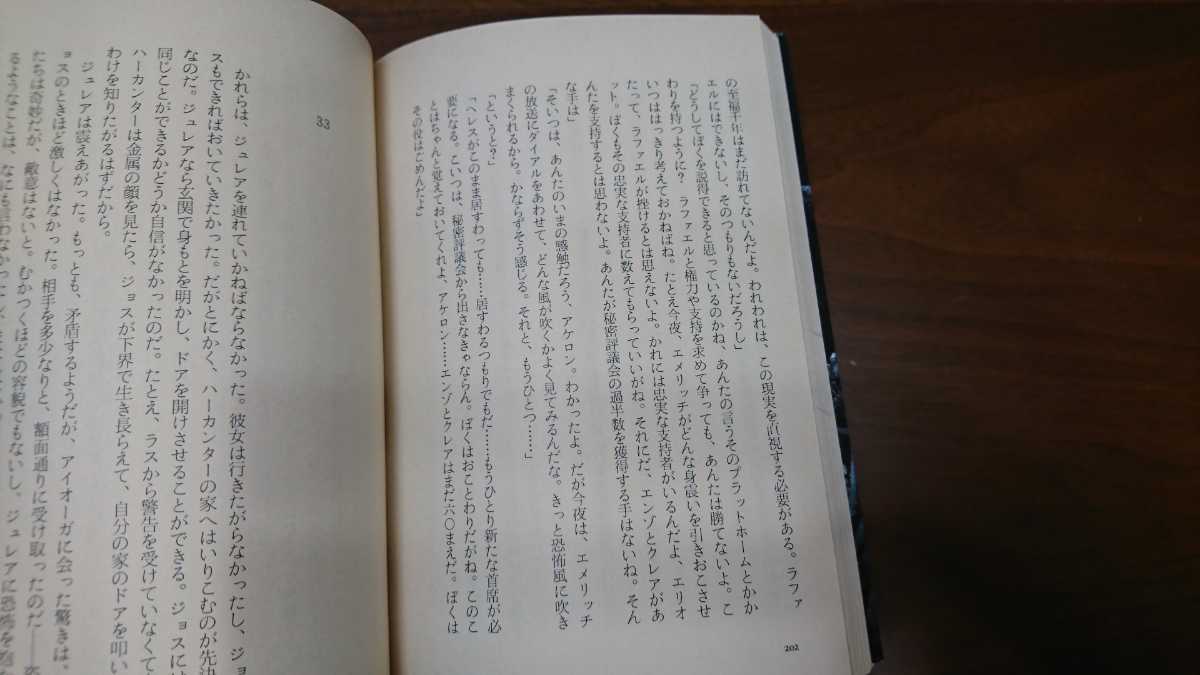 の至福千年はまだ訪れてないんだよ。われわれは、この現実を直視する必要がある。ラファ
エルにはできないし、そのつもりもないだろうし」
「どうしてぼくを説得できると思っているのかね、あんたの言うそのプラットホームとかか
わりを持つように? ラファエルと権力や支持を求めて争っても、あんたは勝てないよ。こ
いつははっきり考えておかねばね。たとえ今夜、エメリッチがどんな身震いを引きおこさせ
たって、ラファエルが挫けるとは思えないよ。かれには忠実な支持者がいるんだよ、エリオ
ット。ぼくもその忠実な支持者に数えてもらっていいがね。それにだ、エンゾとクレアがあ
んたを支持するとは思わないよ。あんたが秘密評議会の過半数を獲得する手はないね。そん
な手は」
「そいつは、あんたのいまの感触だろう、アケロン。わかったよ。だが今夜は、エメリッチ
の放送にダイアルをあわせて、どんな風が吹くかよく見てみるんだな。きっと恐怖風に吹き
まくられるから。かならずそう感じる。それと、もうひとつ……」
「というと?」
「ヘレスがこのまま居すわっても……居すわるつもりでもだ……もうひとり新たな首席が必
要になる。こいつは、秘密評議会から出さなきゃならん。ぼくはおことわりだがね。このこ
とはちゃんと覚えておいてくれよ、アケロン……エンゾとクレアはまだ六〇まえだ。ぼくは
その役はごめんだよ」
202
33
かれらは、ジュレアを連れていかねばならなかった。彼女は行きたがらなかったし、ジョ
スもできればおいていきたかった。だがとにかく、ハーカンターの家へはいりこむのが先決
なのだ。ジュレアなら玄関で身もとを明かし、ドアを開けさせることができる。ジョスには
同じことができるかどうか自信がなかったのだ。たとえ、ラスから警告を受けていなくて
ハーカンターは金属の顔を見たら、ジョスが下界で生き長らえて、自分の家のドアを叩い
わけを知りたがるはずだから。
ジュレアは震えあがった。もっとも、矛盾するようだが、アイオーガに会った驚きは、
ョスのときほど激しくはなかった。相手を多少なりと、額面通りに受け取ったのだ――
たちは奇妙だが、敵意はないと。むかつくほどの容貌でもないし、ジュレアに恐怖を
るようなことは、なにも言わなかった